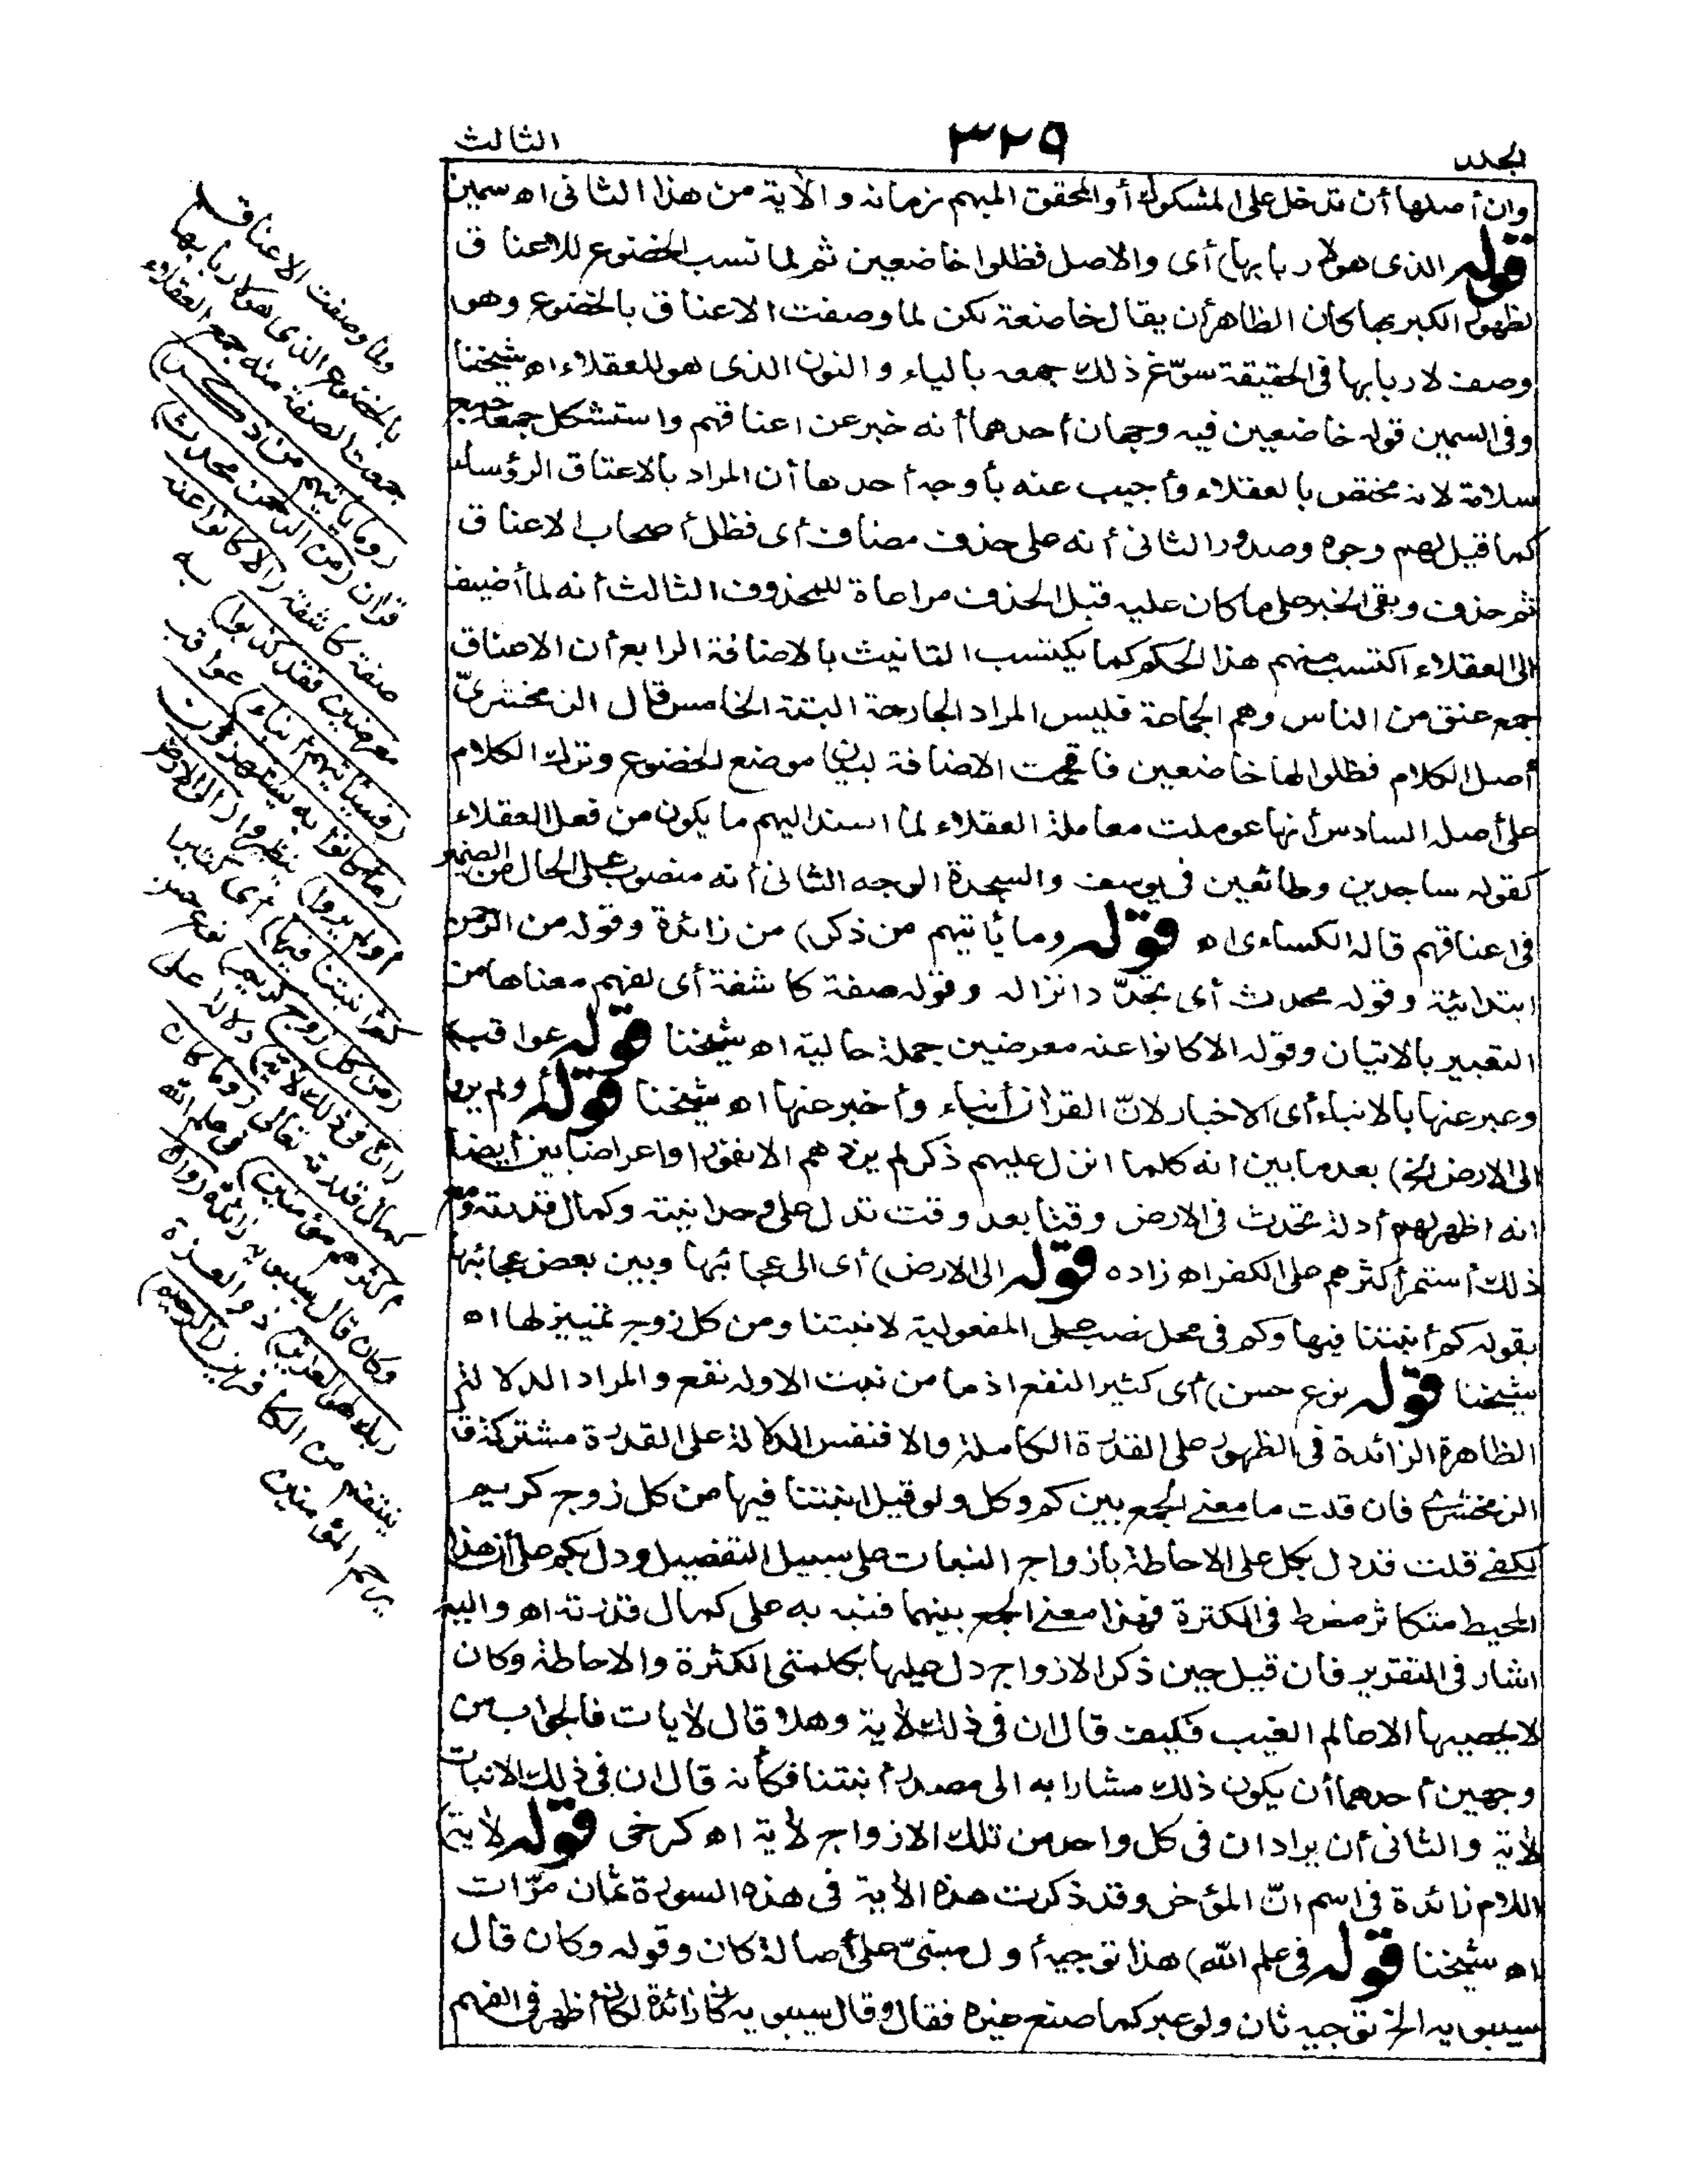 المجلد
٣٢٩
الثالث
وان أصلها أن تدخل على المشكوك أو المحقق المبهم زمانه و الآية من هذا الثانى اه سمين
قوله الذى هو لاربابها) أى والاصل فظلوا خاضعين ثم لما نسب الخضوع للاعناق
لظهور الكبر بها كان الظاهر أن يقال خاضعة لكن لما وصفت الاعناق بالخضوع وهو
وصف لاربابها فى الحقيقة سوّغ ذلك جمعه بالياء و النون الذى هو للعقلاء اه شيخنا
وفى السمين قوله خاضعين فيه وجهان أحدهما أنه خبر عن اعناقهم واستشكل جمعه جمع
سلامة لانه مختص بالعقلاء وأجيب عنه بأوجه أحدها أن المراد بالاعناق الرؤساء
كما قيل لهم وجوه وصدور الثانى أنه على حذف مضاف أى فظل أصحاب الاعناق
ثم حذف وبقى الخبر على ما كان عليه قبل الحذف مراعاة للمحذوف الثالث أنه لما أضيف
الى العقلاء اكتسب منهم هذا الحكم كما يكتسب التانيث بالاضافة الرابع أن الاعناق
جمع عنق من الناس وهم الجماعة فليس المراد الجارحة البتة الخامس قال الزمخشرىّ
أصل الكلام فظلوا لها خاضعين فاقحمت الاضافة لبيان موضع الخضوع وترك الكلام
على أصله السادس أنها عوملت معاملة العقلاء لما اسند اليهم ما يكون من فعل العقلاء
كقوله ساجدين وطائعين فى يوسف والسجدة الوجه الثانى أنه منصوب على الحال من الضمير
فى اعناقهم قاله الكساءى اه قوله وما يأتيهم من ذكر) من زائدة وقوله من الرحمن
ابتدائية وقوله محدث أى تجدّد انزاله وقوله صفة كاشفة أى لفهم معناها من
التعبير بالاتيان وقوله الا كانوا عنه معرضين جملة حالية اه شيخنا قوله عواقب)
وعبر عنها بالانباء أى الاخبار لانّ القرآن أنباء وأخبر عنها اه شيخنا قوله أولم يروا
الى الارض الخ) بعد ما بين انه كلما انزل عليهم ذكر لم يزدهم الا نفورا واعراضا بين أيضا
انه اظهر لهم أدلة تحدث فى الارض وقتا بعد وقت تدل على وحدانيته وكمال قدرته ومع
ذلك أستمر أكثرهم على الكفر اه زاده قوله الى الارض) أى الى عجائبها وبين بعض عجائبها
بقوله كم أنبتنا فيها وكم فى محل نصب على المفعولية لانبتنا ومن كل زوج تمييز لها اه
شيخنا قوله نوع حسن) أى كثير النفع اذ ما من نبت الا وله نفع والمراد الدلالة
الظاهرة الزائدة فى الظهور على القدرة الكاملة والا فنفس الدلالة على القدرة مشتركة
الزمخشرى فان قلت ما معنى الجمع بين كم وكل ولو قيل انبتنا فيها من كل زوج كريم
لكفى قلت قد دل بكل على الاحاطة بازواج النبات على سبيل التفصيل ودل بكم على أن هذا
المحيط متكاثر مفرط فى الكثرة فهذا معنى الجمع بينهما فنبه به على كمال قدرته اه واليه
اشار فى التقرير فان قيل حين ذكر الازواج دل عليها بكلمتى الكثرة والاحاطة وكان
لا يحصيها الا عالم الغيب فكيف قال ان فى ذلك لأية وهلا قال لأيات فالجواب من
وجهين أحدهما أن يكون ذلك مشارا به الى مصدر أنبتنا فكأنه قال ان فى ذلك الانبات
لأية والثانى أن يراد ان فى كل واحد من تلك الازواج لأية اه كرخى قوله لأية)
اللام زائدة فى اسم انّ المؤخر وقد ذكرت هذه الأية فى هذه السورة ثمان مرّات
اه شيخنا قوله فى علم الله) هذا توجيه أول مبنىّ على أصالة كان وقوله وكان قال
سيبويه الخ توجيه ثان ولو عبر كما صنع غيره فقال وقال سيبويه كان زائدة لكان أظهر فى الفهم
ولما وصفت الاعناق
بالخضوع الذى هو لاربابها
جمعت الصفة منه جمع العقلاء
(وما يأتيهم من ذكر)
قرآن (من الرحمن محدث)
صفة كاشفة (الا كانوا عنه
معرضين فقد كذبوا) به
(فسيأتيهم أنباء) عواقب
(ما كانوا به يستهزؤن
أولم يروا) ينظروا (الى الارض
كم أنبتنا فيها) أى كثيرا
(من كل زوج كريم) نوع حسن
(ان فى ذلك لأية) دلالة على
كمال قدرته تعالى (وما كان
أكثرهم مؤمنين) فى علم الله
وكان قال سيبويه زائدة (وان
ربك لهو العزيز) ذو العزة
ينتقم من الكافرين (الرحيم)
يرحم المؤمنين